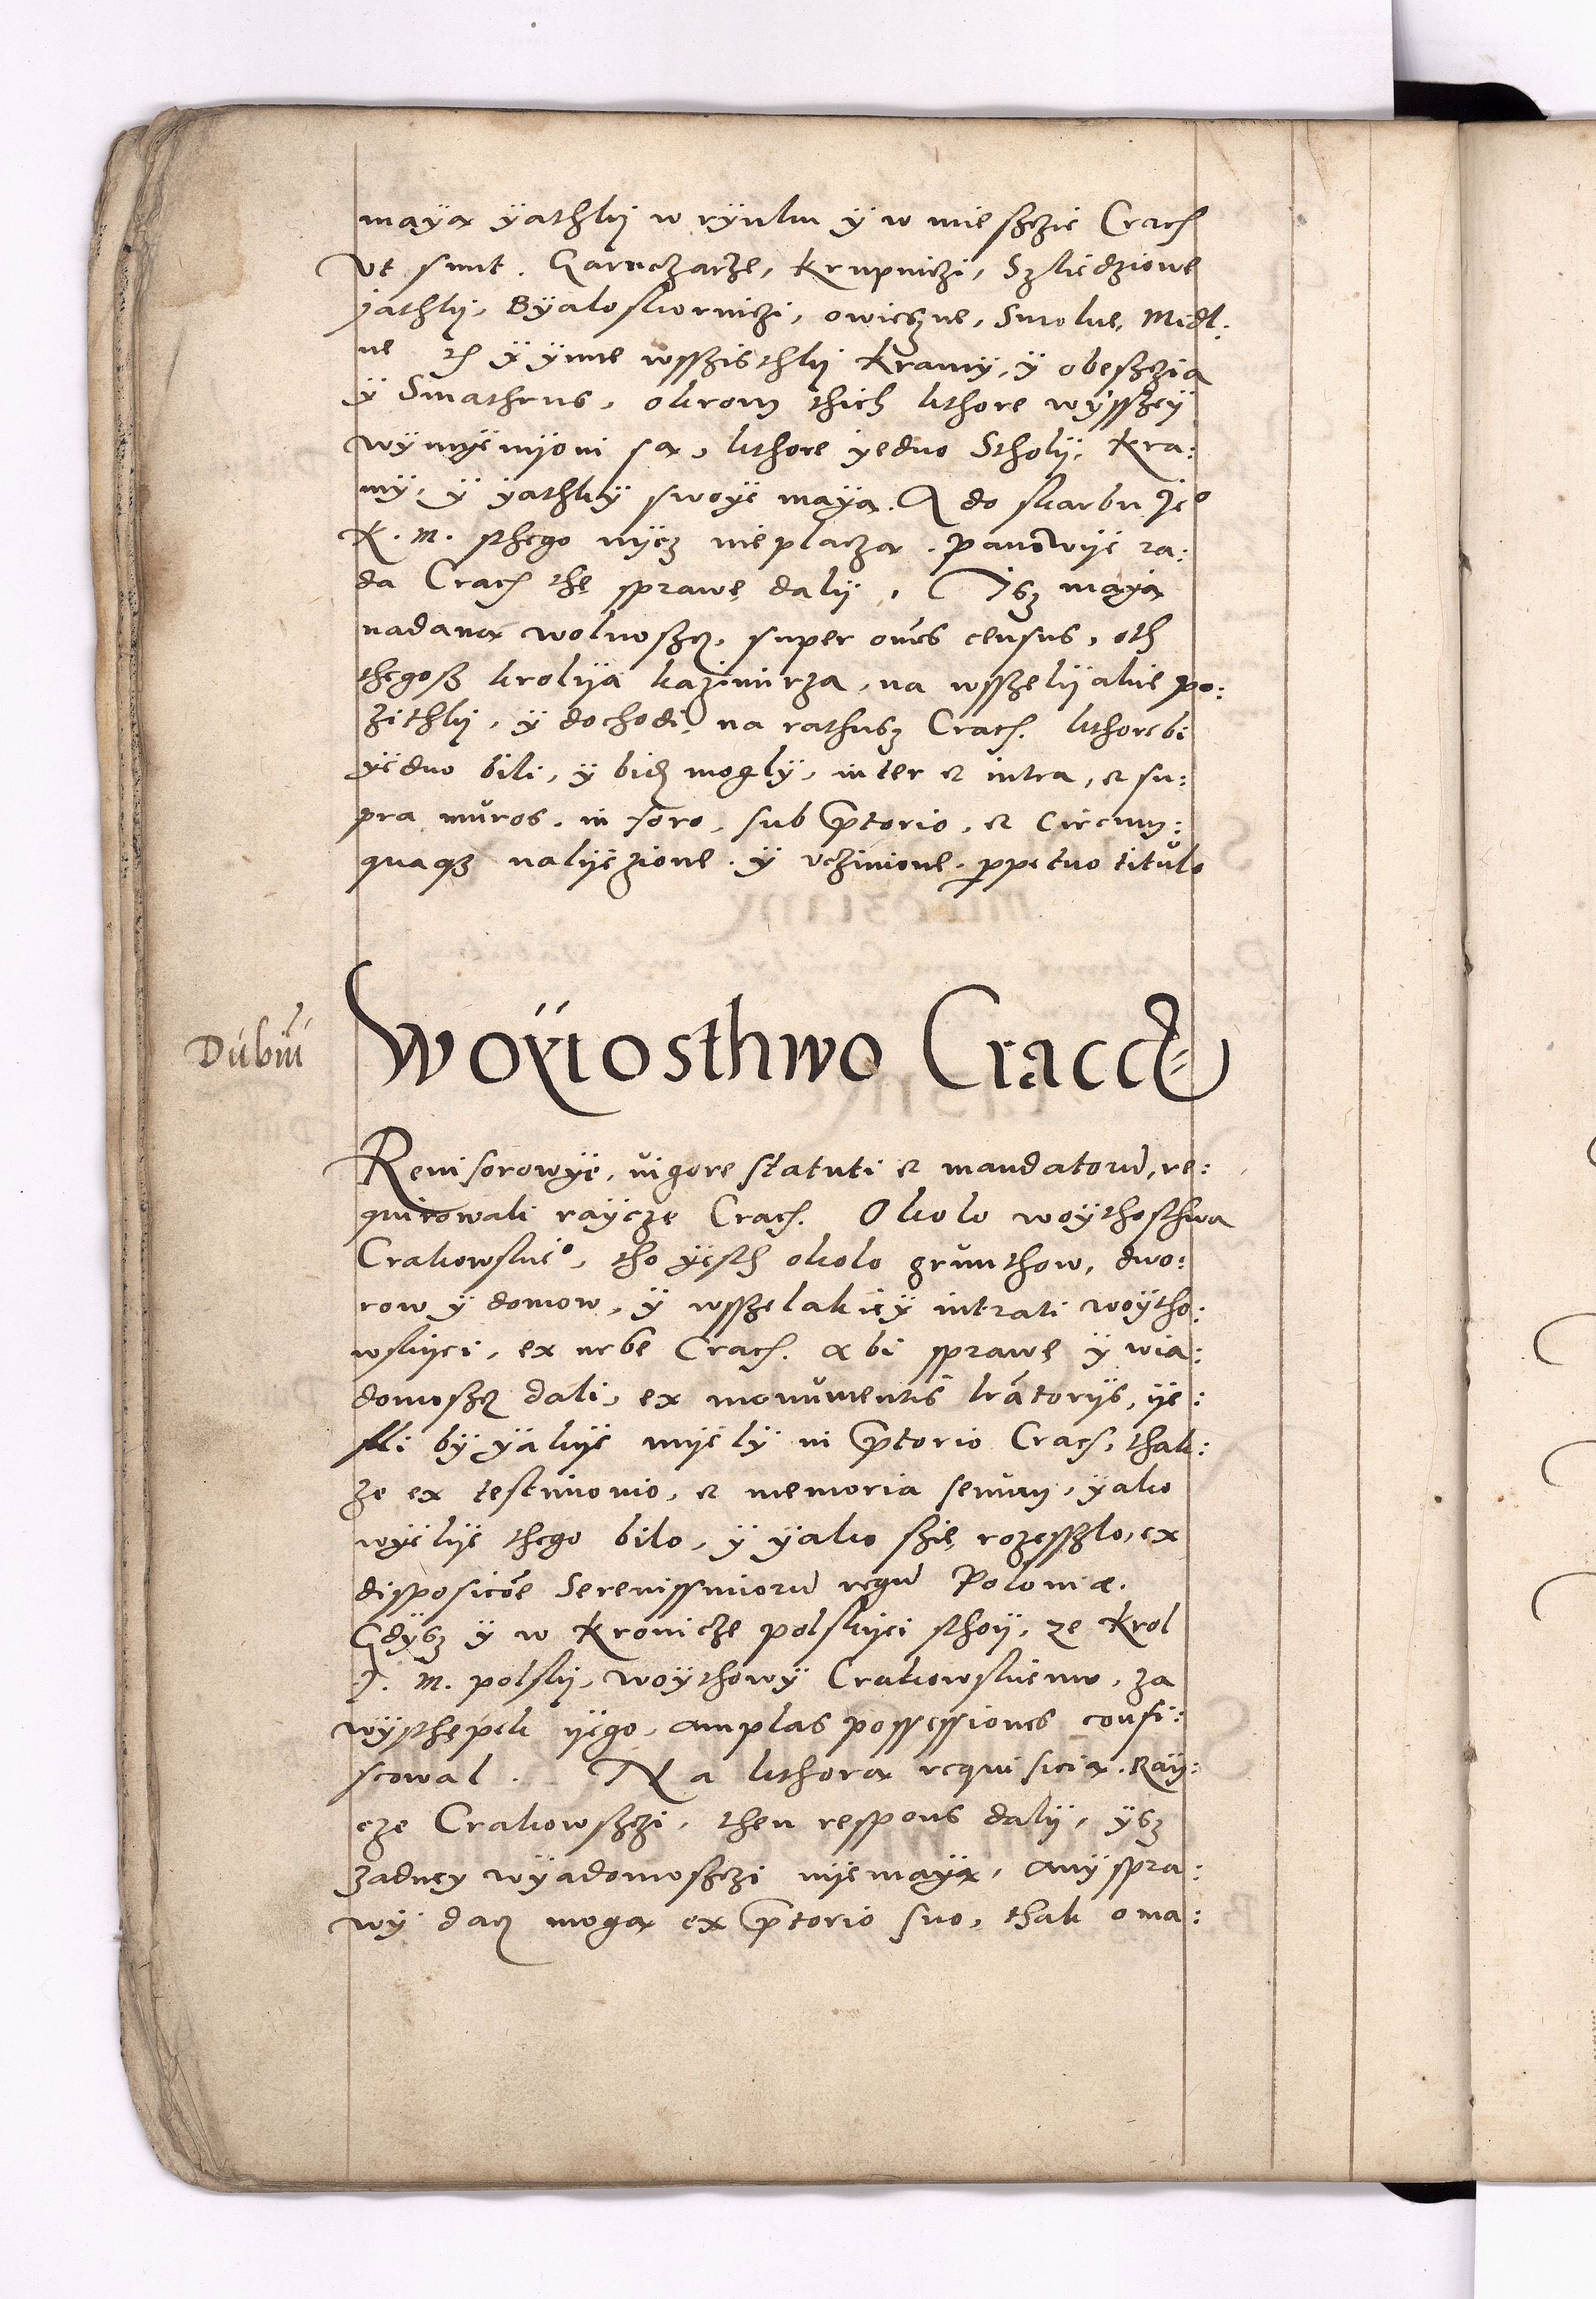 maya ÿathkÿ w rÿnku ÿ w mieszczie Crac:
Vt sunt. Garnczarze, Krupniczi, Szliedzione
jathkÿ, Bÿaloskorniczi, owiesne, Smolne, Midl:
ne etc ÿ ÿnne wsszisthkÿ Kramÿ, ÿ obeszczia
ÿ Smathrus, okrom thich kthore wÿsszeÿ
wÿmÿenÿoni sa, kthore ÿedno Stholÿ, Kra:
mÿ, ÿ ÿathkÿ swoÿe maÿa. A do skarbu Je°
K. M. sthego nÿcz nieplacza. panowÿe ra:
da Crac: the sprawe dalÿ, Isz maja
nadana wolnoszcz, super oẽs census, oth
thegosz krolÿa kazimirza, na wsszelÿakie po:
zithkÿ, ÿ dochodi, na rathusz Crac. kthorebi
ÿedno bili, ÿ bidz moglÿ, inter et intra, et su:
pra muros, in foro, sub p̃torio, et Circum:
quaqz nalÿezione, ÿ vczinione, ꝑpetuo titulo
Dubiũ
Woÿtosthwo Cracõ
Reuisorowÿe, vigore statuti et mandatorũ, re:
quirowali raÿcze Crac. Okolo woÿthosthwa
Crakowskie°, tho ÿesth okolo grunthow, dwo:
row ÿ domow, ÿ wsszelakieÿ intrati woÿtho:
wskÿei, ex urbe Crac. abi sprawe ÿ wia:
domoszcz dali, ex monumentis lr̃atorÿs, ÿe:
sli bÿ ÿakÿe mÿelÿ in p̃torio Crac, thak:
ze ex testimonio, et memoria senum, ÿako
wÿelÿe thego bilo, ÿ ÿako szie rozesszlo, ex
disposicõe Serenissimorũ regũ Poloniæ.
Gdÿsz ÿ w Kronicze polskÿei sthoÿ, ze Krol
J. M. polskÿ, woÿthowÿ Crakowskiemu, za
wÿsthepek ÿego, amplas possessiones confi:
scowal. Na kthora requisicia. Raÿ:
cze Crakowszczi, then respons dalÿ, ÿsz
zadneÿ wÿadomoszczi nÿemaÿa, anÿ spra:
wÿ dacz moga ex p̃torio suo, thak oma: